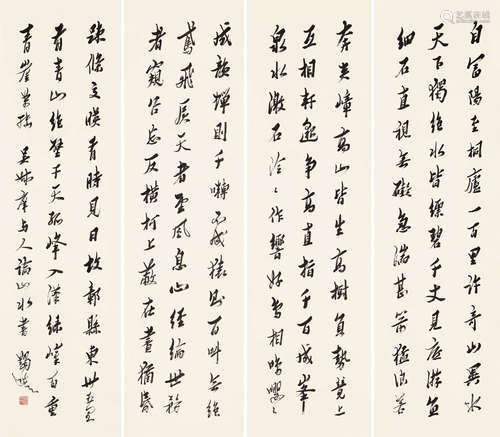 自富陽至桐廬一百里許奇山異水
天下獨絕水皆縹碧千丈見底游魚
細石直視無礙急湍甚箭猛浪若
奔夾嶂高山皆生高樹負勢競上
互相軒邈爭高直指千百成峯
泉水激石泠泠作響好鳥相鳴嚶嚶
成韻蟬則千轉不成猿則百叫無絕
鳶飛戾天者望風息心經綸世務
者窺谷忘反橫柯上蔽在晝猶昏
疎條交映有時見日故鄣縣東卅五里
有青山絕壁干天孤峰入漢綠嶂百重
青崖萬轉 吳叔庠與人論山水書